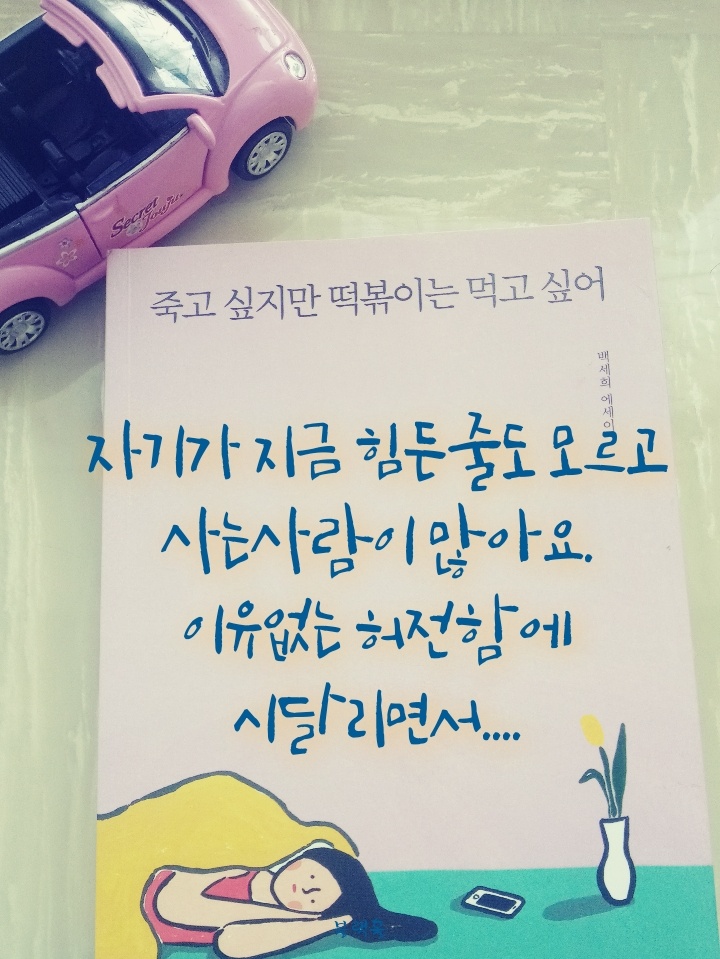 Secret
죽고 싶지만 떡볶이는 먹고 싶어
백세희 에세이
자기가 지금 힘든줄도 모르고
사는사람이 많아요.
이유없는 허전함에
시달리면서....